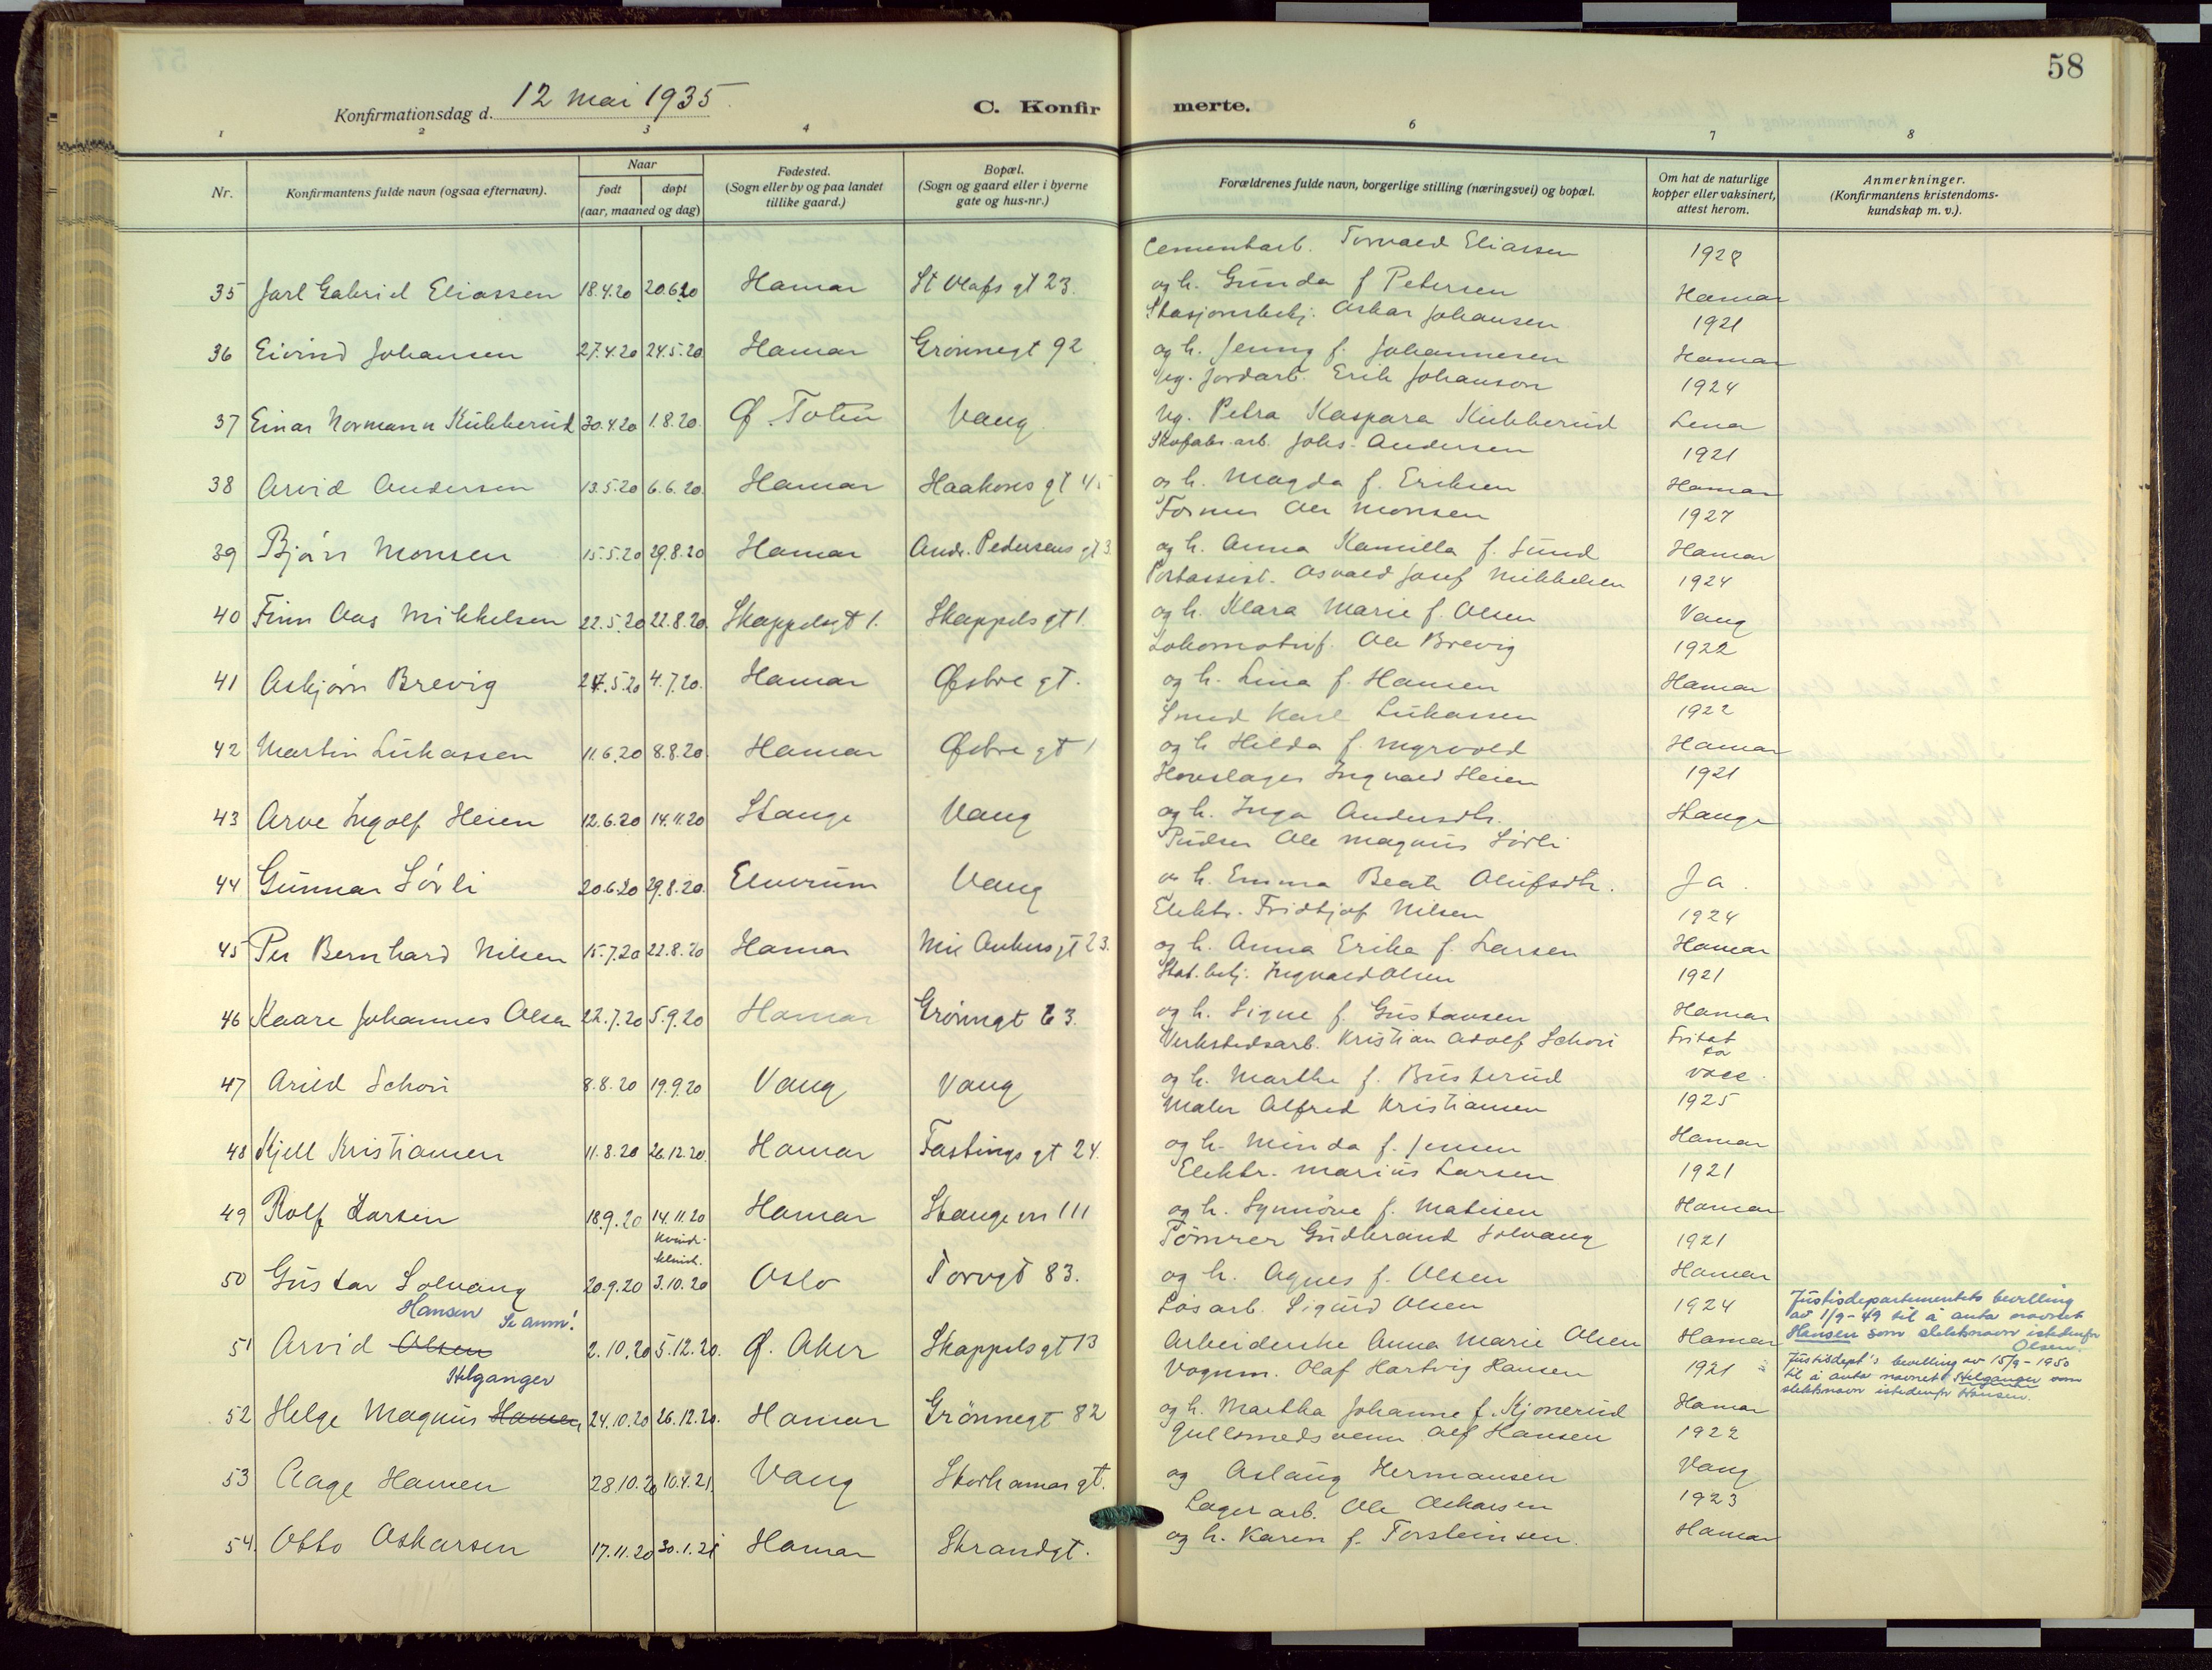 58
Konfirmationsdag d. 12 mai 1935.
C. Konfirmerte.
1 2 3 4 6 7 8
Nr.
Konfirmantens fulde navn (ogsaa efternavn).
Naar
født døpt
(aar, maaned og dag)
Fødested.
(Sogn eller by og paa landet
tillike gaard.)
Bopæl.
(Sogn og gaard eller i byerne
gate og hus-nr.)
Forældrenes fulde navn, borgerlige stilling (næringsvei) og bopæl.
Om hat de naturlige
kopper eller vaksinert,
attest herom.
Anmerkninger.
(Konfirmantens kristendoms-
kundskap m. v.).
Cementarb. Torvald Eliassen 1928
35 Jarl Gabriel Eliassen 18.4.20 20.6.20 Hamar St Olafs gt 23. og h. Gunda f Petersen Hamar
Stasjonsbetj. Oskar Johansen 1921
36 Eivind Johansen 27.4.20 24.5.20 Hamar Grønnegt 92 og h. Jenny f. Johannesen Hamar
Ug. Jordarb. Erik Johanson 1924
37 Einar Normann Kubberud 30.4.20 1.8.20. Ø. Toten Vang Ug. Petra Kaspara Kubberud Lena
Skofabr.arb. Johs. Andersen 1921
38 Arvid Andersen 13.5.20 6.6.20. Hamar Haakons gt 45 og h. Magda f. Eriksen Hamar
Former Ole Monsen 1927
39 Bjørn Monsen 15.5.20 29.8.20 Hamar Andr. Pedersens gt 3. og h. Anna Kamilla f. Lund Hamar
Postassist. Osvald Josef Mikkelsen 1924
40 Finn Aas Mikkelsen 22.5.20 22.8.20. Skappelsgt 1. Skappels gt 1. og h. Klara Marie f. Olsen Vang
Lokomotivf. Ole Brevig 1922
41 Asbjørn Brevig 27.5.20 4.7.20. Hamar Østre gt. og h. Lina f. Hansen Hamar
Smed Karl Lukassen 1922
42 Martin Lukassen 11.6.20 8.8.20. Hamar Østre gt 1 og h Hilda f. Myrvold Hamar
Hovslager Ingvald Heien 1921
43 Arve Ingolf Heien 12.6.20 14.11.20 Stange Vang og h. Inga Andersdtr. Stange
Pudser Ole Magnus Sørli
44 Gunnar Sørli 20.6.20 29.8.20. Elverum Vang og h. Emma Beate Olufsdtr. Ja.
Elektr. Fridtjof Nilsen 1924
45 Per Bernhard Nilsen 15.7.20 22.8.20 Hamar Mic Ankers gt 23. og h. Anna Erika f. Larsen Hamar
Stat.betj. Ingvald Olsen 1921
46 Kaare Johannes Olsen 22.7.20 5.9.20 Hamar Grønngt 63. og h. Signe f. Gustavsen Hamar
Verkstedsarb. Kristian Adolf Schou Fritat
for
47 Arild Schou 8.8.20 19.9.20 Vang Vang og h. Marthe f. Busterud vacc.
Maler Alfred Kristiansen 1925
48 Kjell Kristiansen 11.8.20 26.12.20. Hamar Fastings gt 24. og h. Minda f. Jensen Hamar
Elektr. Marius Larsen 1921
49 Rolf Larsen 18.9.20 14.11.20 Hamar Stange vn 111 og h. Synnøve f. Matisen Hamar
Kvindeklinik. Tømrer Gudbrand Solvang 1921
50 Gustav Solvang 20.9.20 3.10.20 Oslo Torvgt 83. og h. Agnes f. Olsen Hamar
Hansen Se anm! Løsarb. Sigurd Olsen 1924
51 Arvid Olsen 2.10.20 5.12.20. Ø. Aker Skappels gt 13 Arbeiderske Anna Marie Olsen Hamar
Justisdepartementets bevilling
av 1/9-49 til å anta navnet
Hansen som slektsnavn istedenfor
Olsen.
Helganger Vognm. Olaf Hartvig Hansen 1921
Justisdept's bevilling av 15/9-1950
til å anta navnet Helganger som
slektsnavn istedenfor Hansen.
52 Helge Magnus Hansen 24.10.20 26.12.20. Hamar Grønnegt 82 og h. Martha Johanne f. Kjonerud Hamar
Gullsmedsvenn Alf Hansen 1922
53 Aage Hansen 28.10.20 10.4.21. Vang Storhamar gt. og Aslaug Hermansen Vang
Lagerarb. Ole Oskarsen 1923
54. Otto Oskarsen 17.11.20 30.1.21 Hamar Strandgt. og h. Karen f. Torsteinsen. Hamar